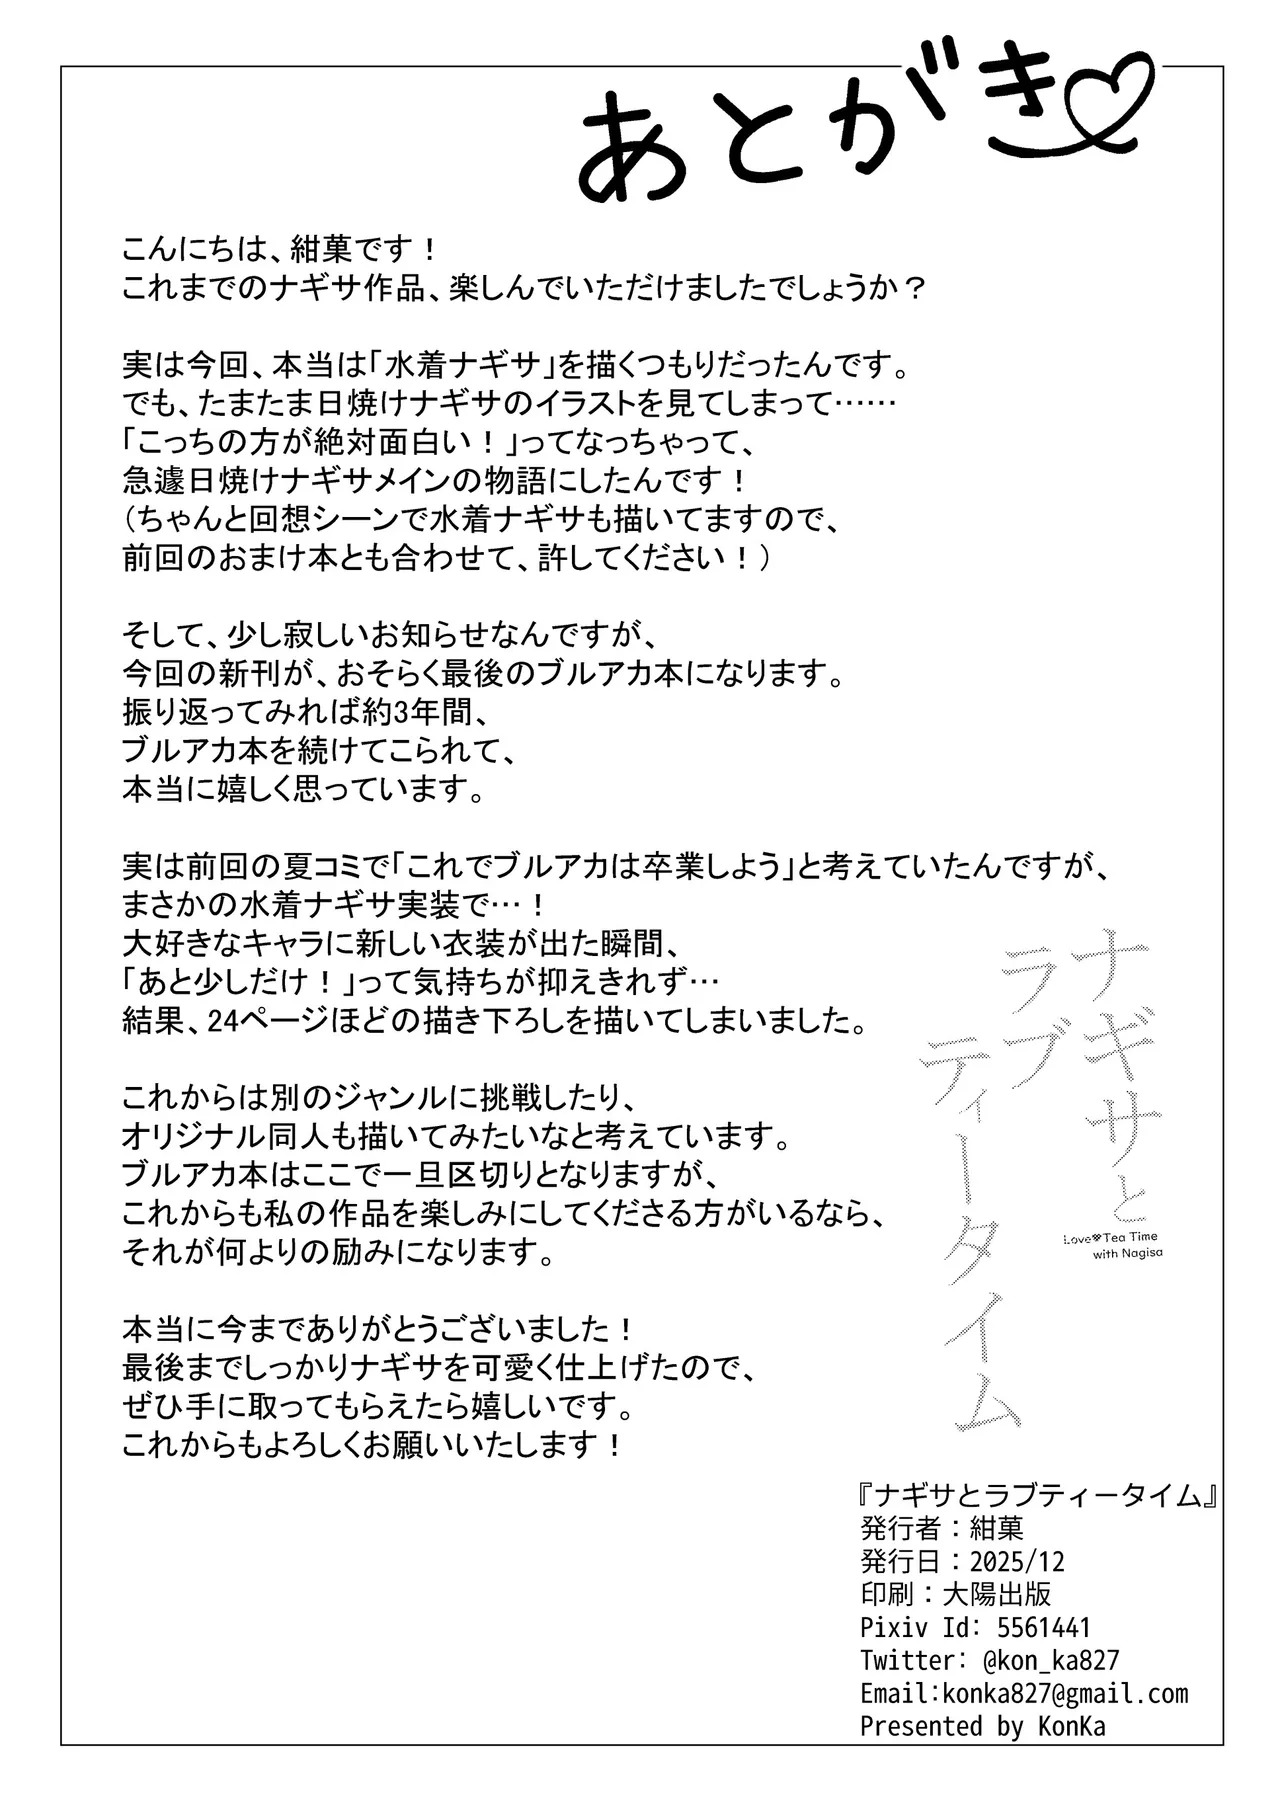 あとがき♡
こんにちは、紺菓です！
これまでのナギサ作品、楽しんでいただけましたでしょうか？
実は今回、本当は「水着ナギサ」を描くつもりだったんです。
でも、たまたま日焼けナギサのイラストを見てしまって……
「こっちの方が絶対面白い！」ってなっちゃって、
急遽日焼けナギサメインの物語にしたんです！
（ちゃんと回想シーンで水着ナギサも描いてますので、
前回のおまけ本とも合わせて、許してください！）
そして、少し寂しいお知らせなんですが、
今回の新刊が、おそらく最後のブルアカ本になります。
振り返ってみれば約3年間、
ブルアカ本を続けてこられて、
本当に嬉しく思っています。
実は前回の夏コミで「これでブルアカは卒業しよう」と考えていたんですが、
まさかの水着ナギサ実装で…！
大好きなキャラに新しい衣装が出た瞬間、
「あと少しだけ！」って気持ちが抑えきれず…
結果、24ページほどの描き下ろしを描いてしまいました。
これからは別のジャンルに挑戦したり、
オリジナル同人も描いてみたいなと考えています。
ブルアカ本はここで一旦区切りとなりますが、
これからも私の作品を楽しみにしてくださる方がいるなら、
それが何よりの励みになります。
本当に今までありがとうございました！
最後までしっかりナギサを可愛く仕上げたので、
ぜひ手に取ってもらえたら嬉しいです。
これからもよろしくお願いいたします！
ナギサと
ラブ
ティータイム
Love♥Tea Time
with Nagisa
『ナギサとラブティータイム』
発行者：紺菓
発行日：2025/12
印刷：大陽出版
Pixiv Id: 5561441
Twitter: @kon_ka827
Email:konka827@gmail.com
Presented by KonKa